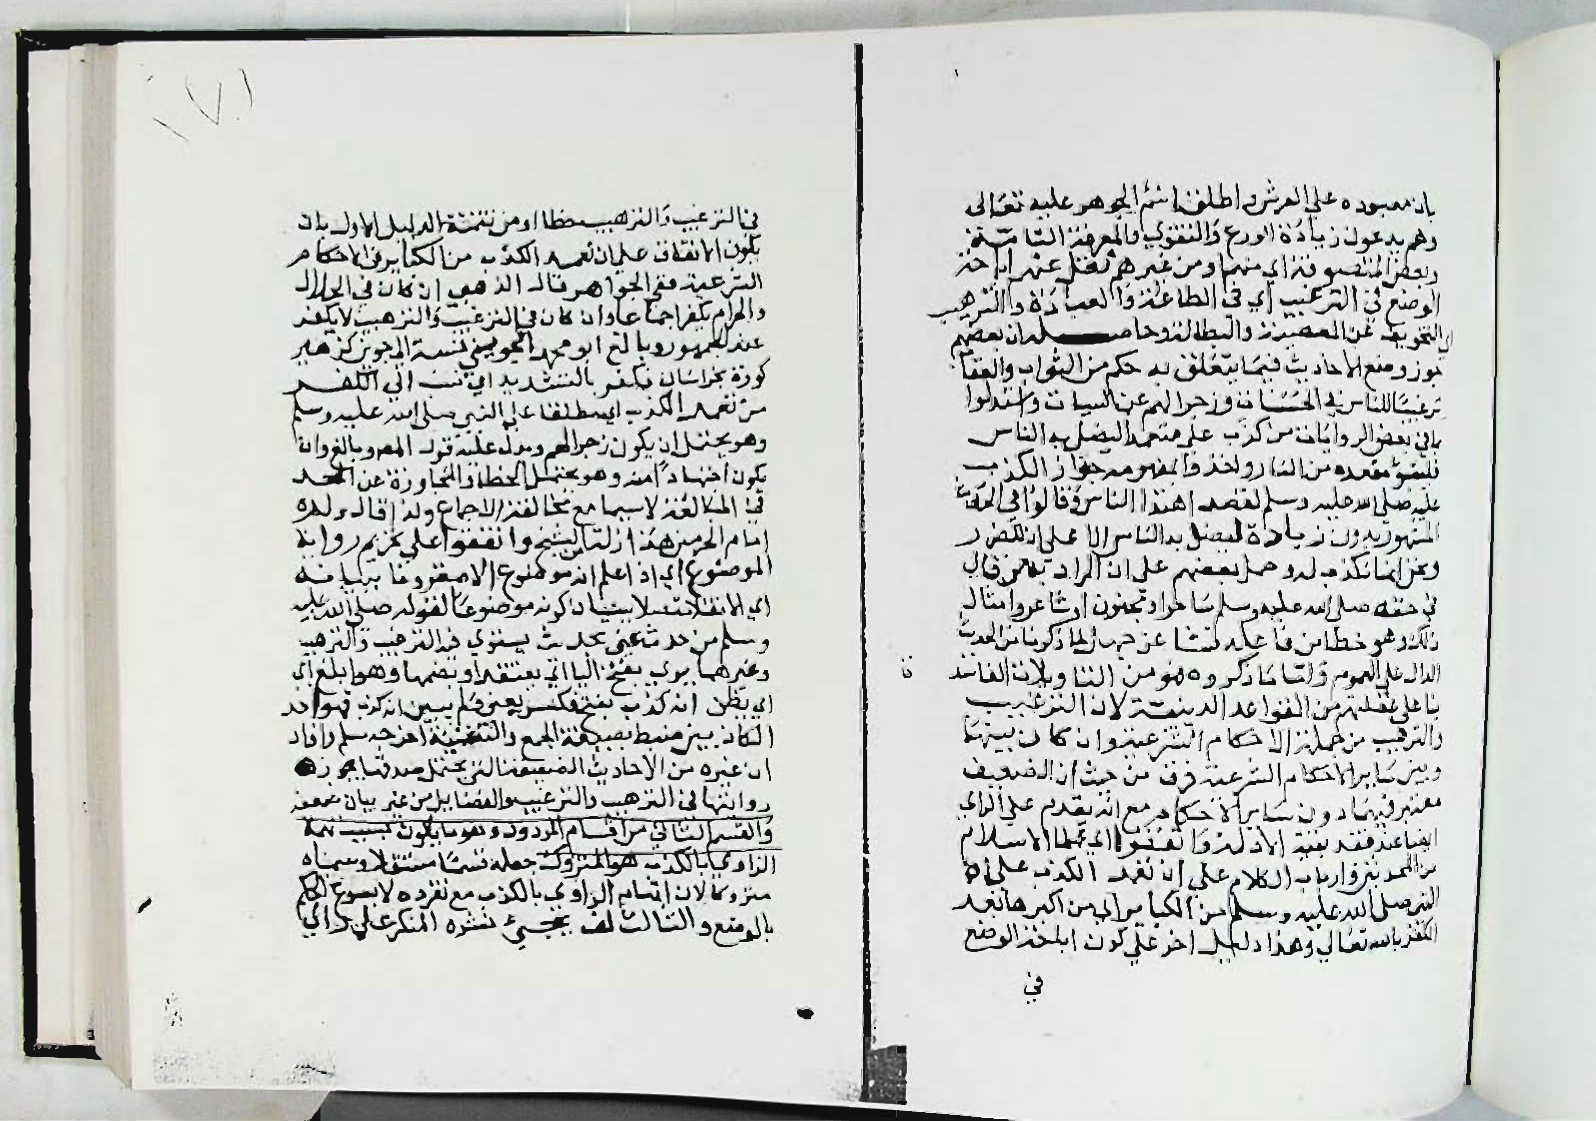 بان معبوده على العرش واطلق اسم الجوهر عليه تعالى
وهم يدعون زيادة الورع والتقوى والمعرفة التامة
وبعض المتصوفة اي منهما ومن غيرهم نقل عنهم اباحة
الوضع في الترغيب اي في الطاعة والعبادة والترهيب
اي التخويف عن المعصية والبطالة وحاصله ان بعضهم
جوزوا وضع الاحاديث فيما يتعلق به حكم من الثواب والعقاب
ترغيبا للناس في الحسنات وزجرا لهم عن السيات واستدلوا
بما في بعض الروايات من كذب علي متعمدا ليضل به الناس
فليتبوء مقعده من النار واخذوا بمفهومه جواز الكذب
عليه صلى الله عليه وسلم لقصد اهتداء الناس وقالوا في الحديث
المشهور بدون زيادة ليضل به الناس الا على ان تضرر
ونحن انما نكذب له وحمل بعضهم على ان المراد به من قال
في حقه صلى الله عليه وسلم ساحر او مجنون او شاعر وامثال
ذلك وهو خطا من فاعله نشا عن جهل لما ذكرنا من الحديث
الدال على العموم واما ما ذكروه فهو من التاويلات الفاسدة
بنا على غفلتهم من القواعد الدينية لان الترغيب
والترهيب من جملة الاحكام الشرعية وان كان بينهما
وبين ساير الاحكام الشرعية فرق من حيث ان الضعيف
معتبر فيهما دون ساير الاحكام مع انه يقدم على الراي
ايضا عند فقد بقية الادلة واتفقوا اي علما الاسلام
من المحدثين وارباب الكلام على ان تعمد الكذب على
النبي صلى الله عليه وسلم من الكباير اي من اكبرها بعد
الكفر بالله تعالى وهذا دليل اخر على كون اباحة الوضع
في
في الترغيب والترهيب خطا او من تتمة الدليل الاول بان
يكون الاتفاق على ان تعمد الكذب من الكباير في الاحكام
الشرعية ففي الجواهر قال الذهبي ان كان في الحلال
والحرام يكفر اجماعا وان كان في الترغيب والترهيب لا يكفر
عند الجمهور وبالغ ابو محمد الجويني نسبة الى جوين كزهير
كورة بخراسان فكفر بالتشديد اي نسب الى الكفر
من تعمد الكذب اي مطلقا على النبي صلى الله عليه وسلم
وهو يحتمل ان يكون زجرا لهم ويدل عليه قول المصـ وبالغ وان
يكون اجتهادا منه وهو يحتمل الخطا والمجاوزة عن الحد
في المبالغة لاسيما مع مخالفة الاجماع ولذا قال ولده
امام الحرمين هذه زلة من الشيخ واتفقوا على تحريم رواية
الموضوع اي اذا علم انه موضوع الا مقرونا ببيانه
اي الا نقلا متصلا ببيان كونه موضوعا لقوله صلى الله عليه
وسلم من حدث عني بحديث يستوي فيه الترغيب والترهيب
وغيرهما يرى بفتح اليا اي يعتقد او بضمها وهو ابلغ اي
اي يظن انه كذب بفتح فكسر يعني ولم يبين انه كذب فهو احد
الكاذبين ضبط بصيغة الجمع والتثنية اخرجه مسلم وافاد
ان غيره من الاحاديث الضعيفة التي يحتمل صدقها يجوز
روايتها في الترهيب والترغيب والفضايل من غير بيان ضعفه
والقسم الثاني من اقسام المردود وهو ما يكون بسبب تهمة
الراوي بالكذب هو المتروك جعله قسما مستقلا وسماه
متروكا لان اتهام الراوي بالكذب مع تفرده لا يسوغ الحكم
بالوضع والثالث لف يجيء نشره المنكر على راي